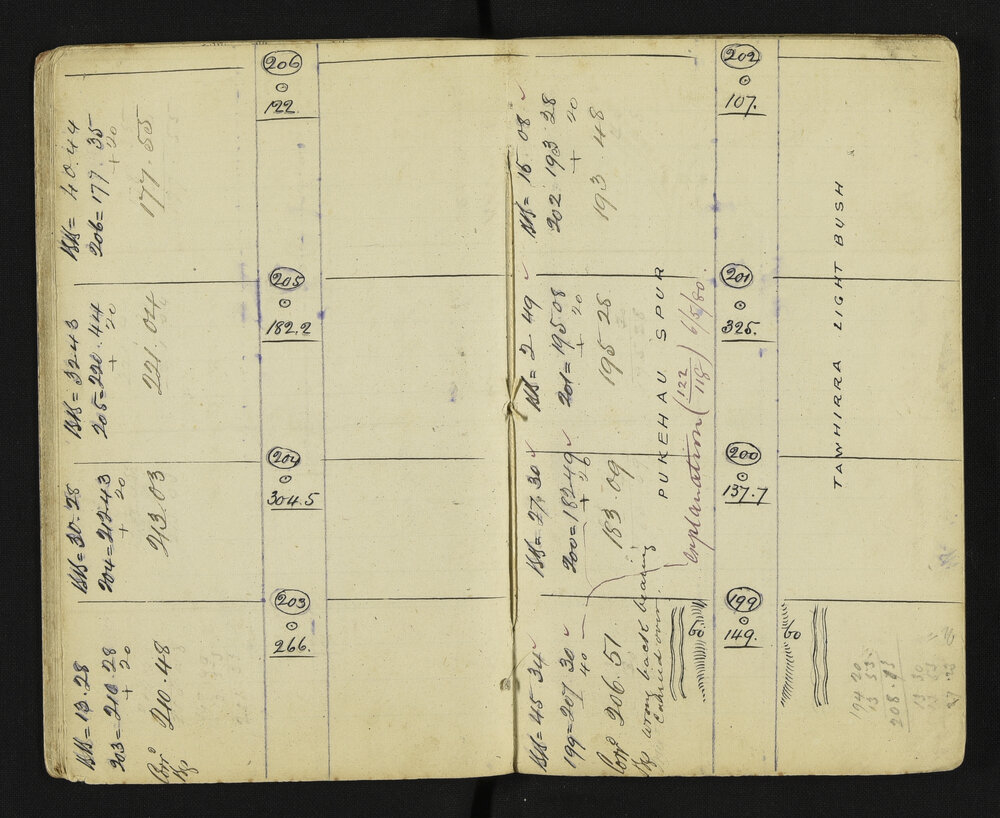 206
122.
205
182.2
204
304.5
203
266.
= 40.44
206 = 177. 35
+ 20
177.55
= 32 43
205 = 220.44
+ 20
221.04
= 30.28
204 = 212.43
+ 20
213.03
= 13.28
203 = 210.28
+ 20
210.48
202
107.
201
325.
200
137.7
199
149.
= 16 08
202 193 28
+ 20
193 48
= 2 49
201 = 195 08
+ 20
195 28
= 27.30
200 = 182 49
+ 20
183.09
= 45 34
199 = 207 30
40
206.51
wrong back bearing
carried on
PUKEHAU SPUR
explanation (122/118) 6/5/80.
60
60
TAWHIRRA LIGHT BUSH
194 20
13 53
208.13
13 30
13 53
27.23